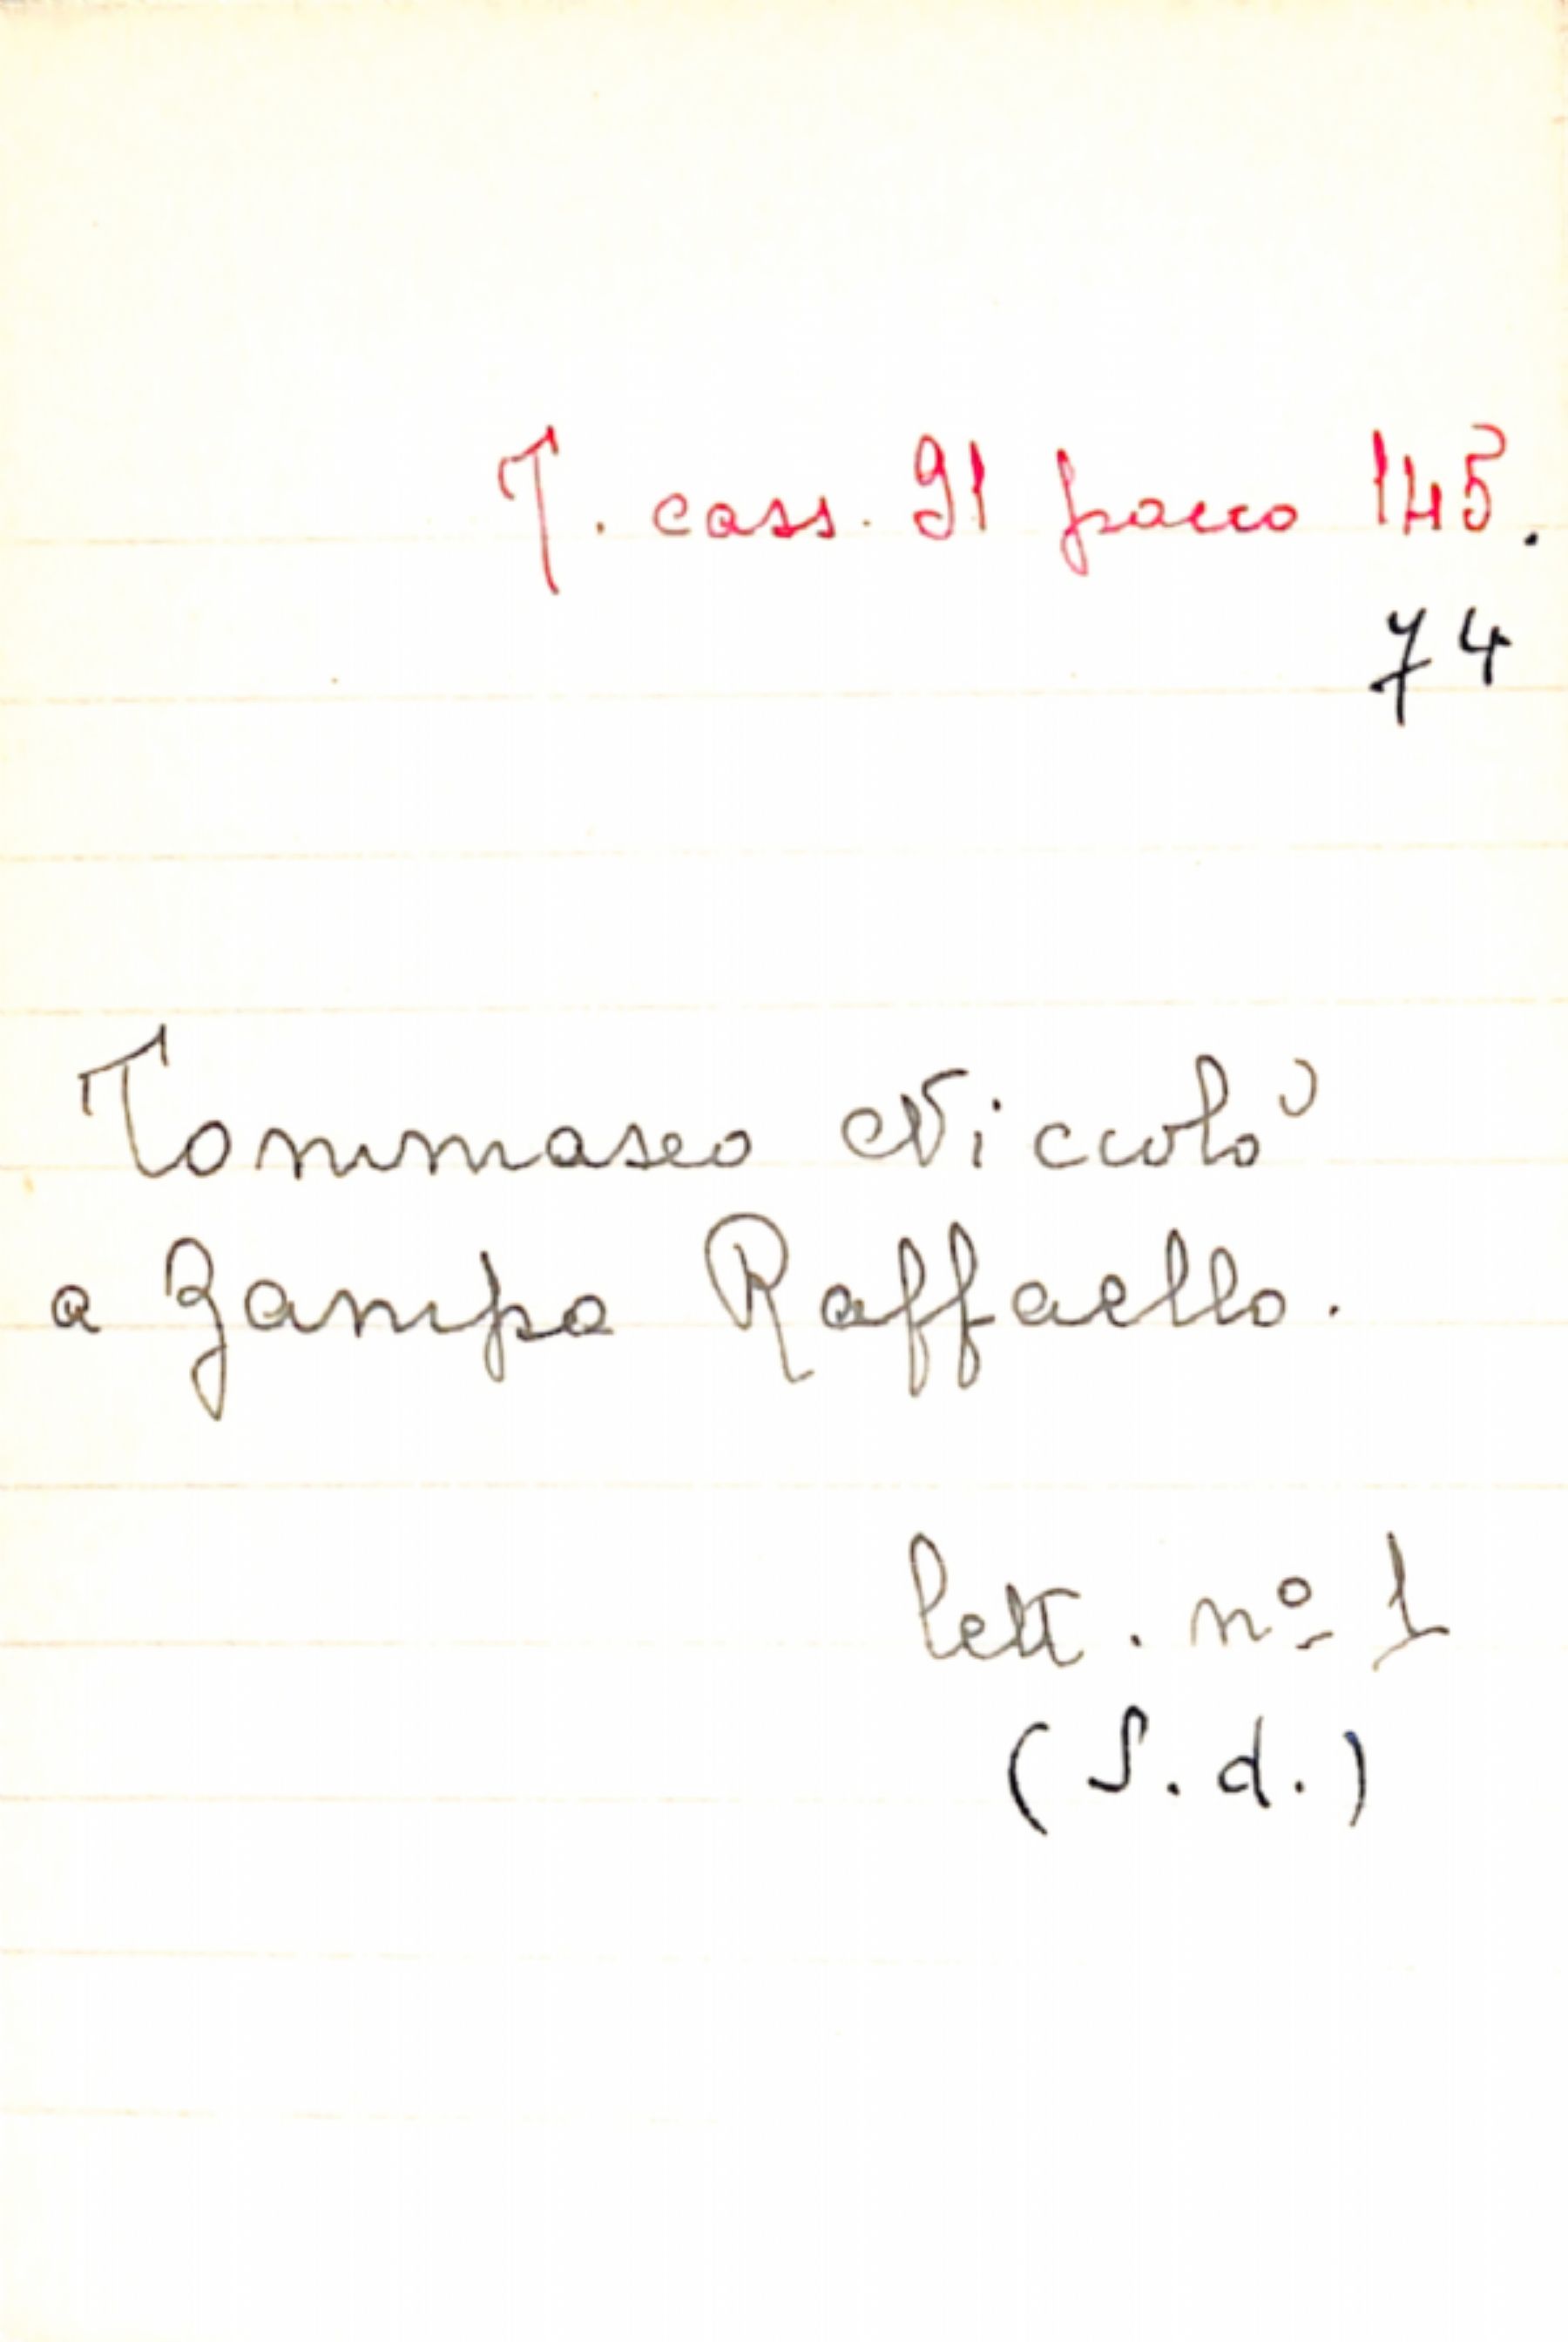 T. cass. 91 pacco 145.
74
Tommaseo Niccolò
a Zampa Raffaello.
lett. nº 1
(S. d.)